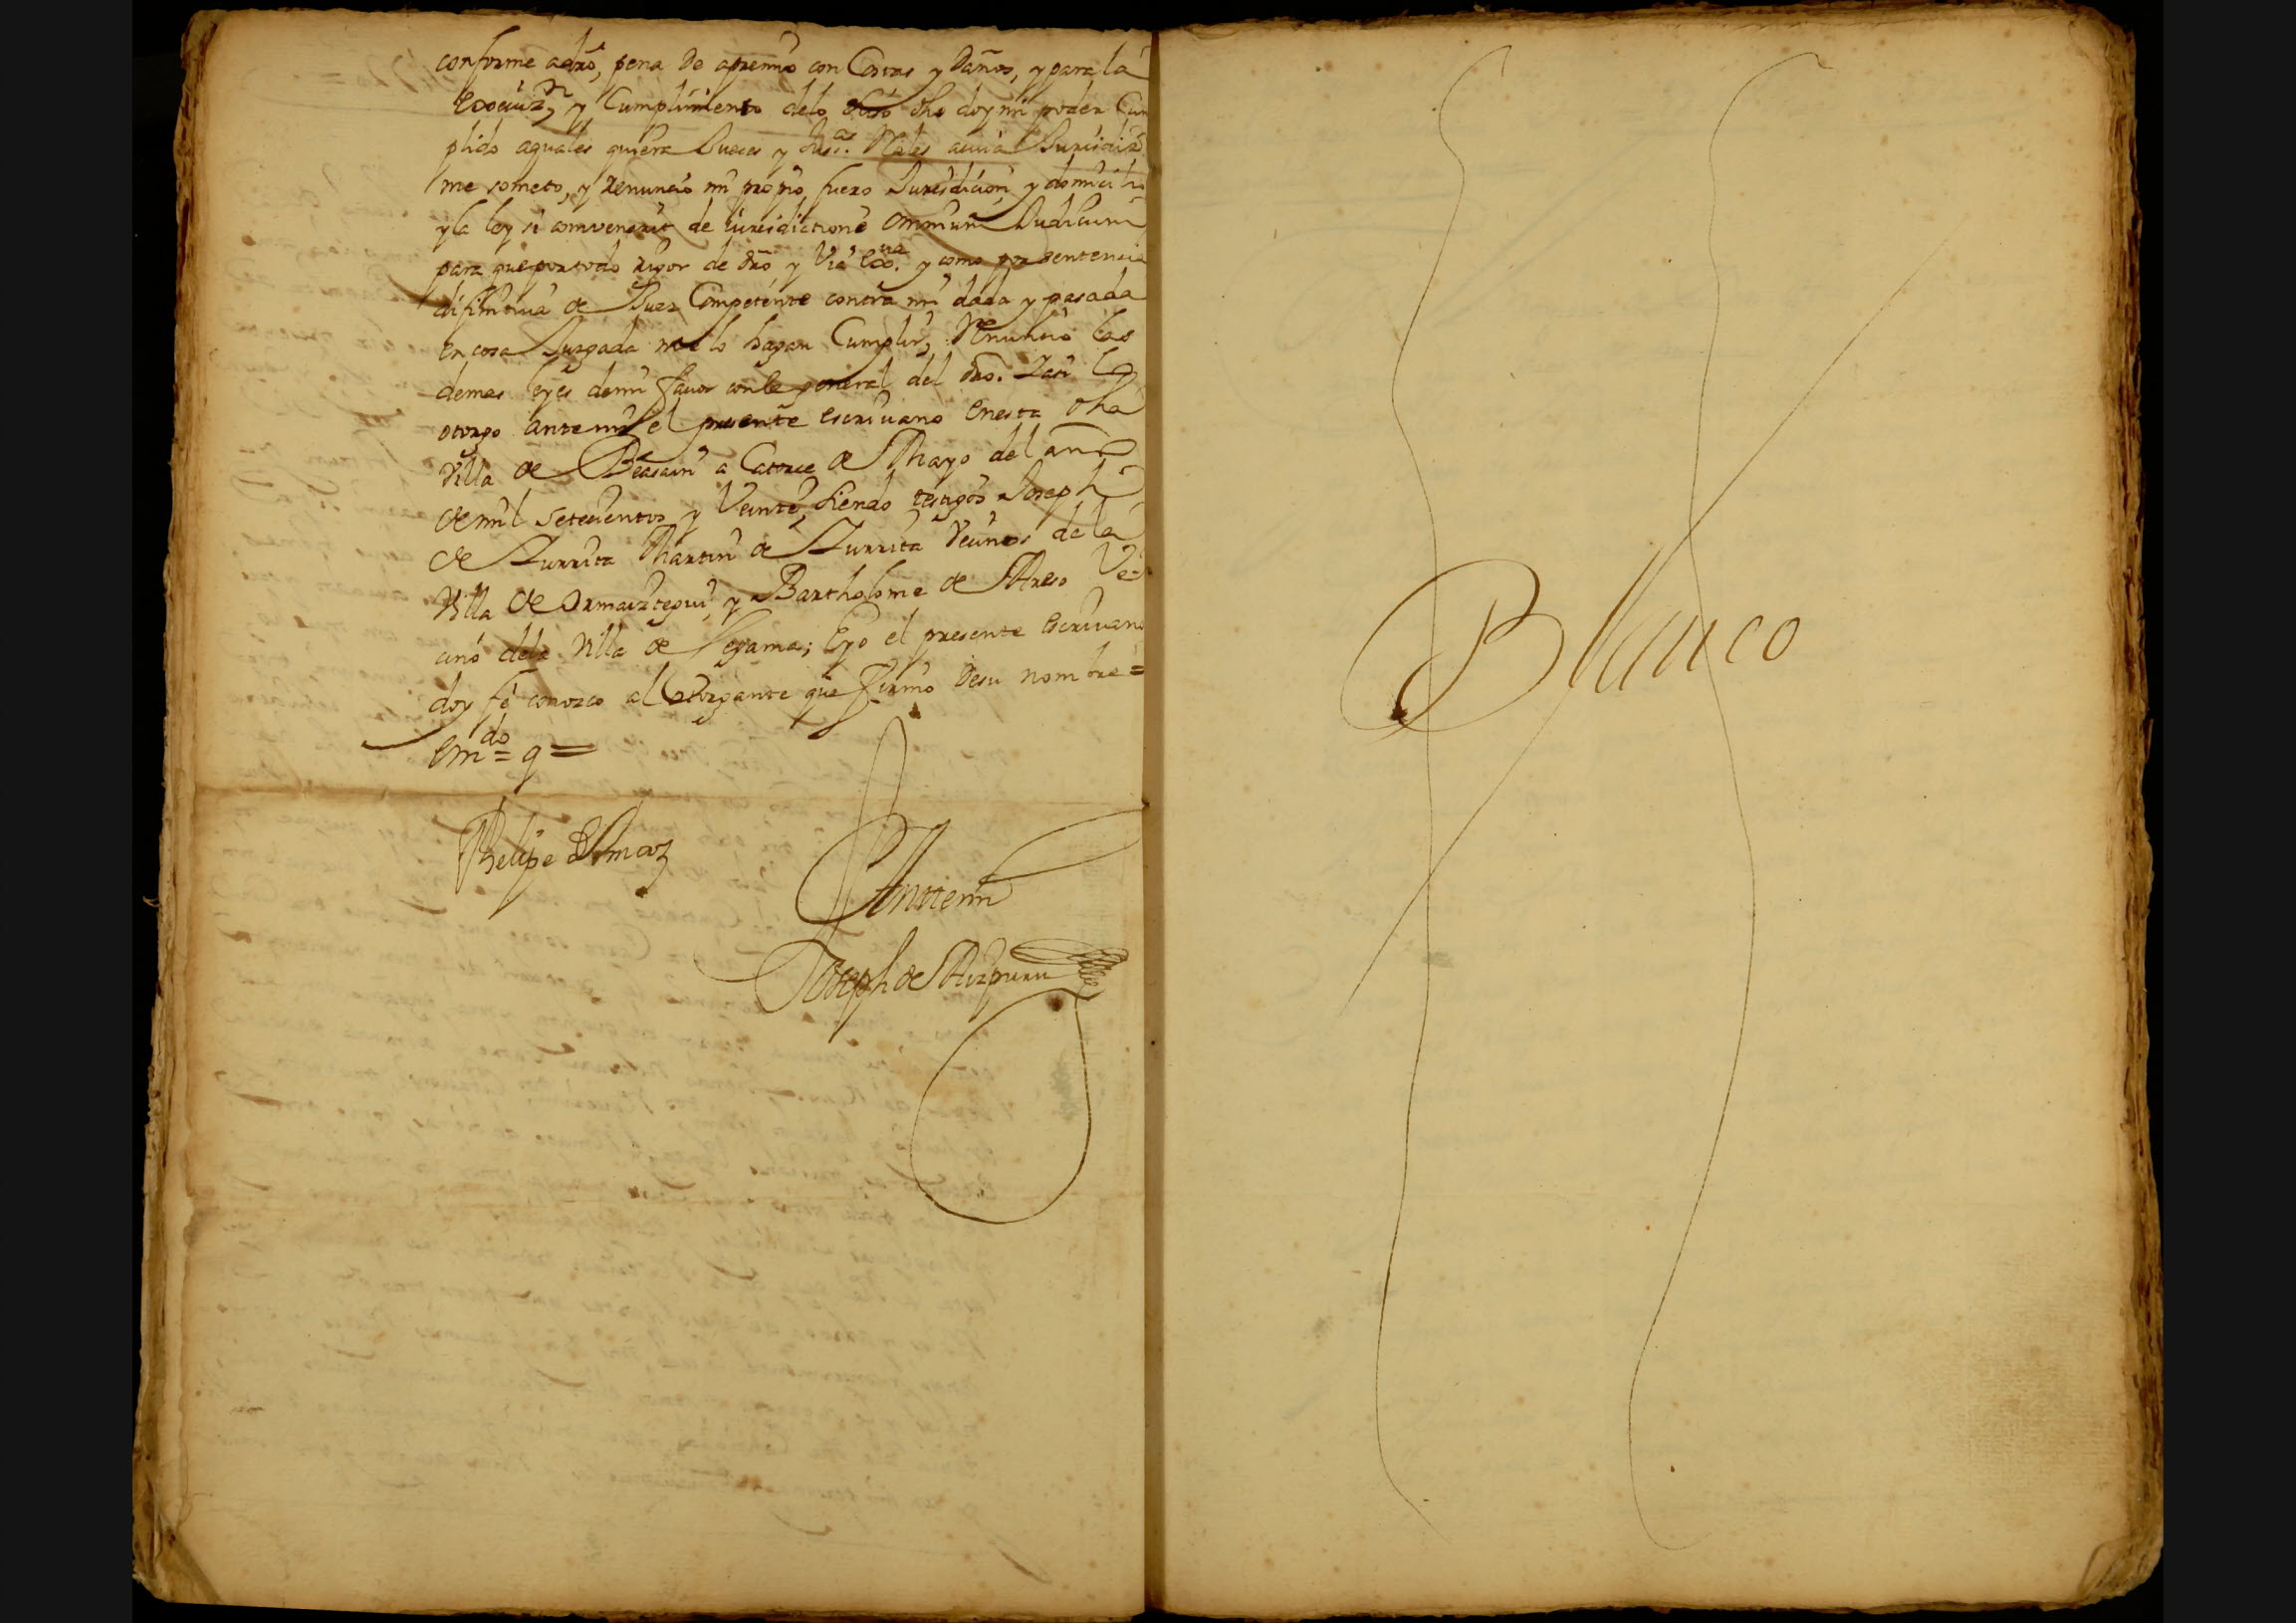 conforme adrõ, pena de apremio con Costas y Daños, y para la
Execuz.n y Cumplimiento delo dho doy mi poder Cum
plido aquales quiera Jueces y Jus.as Rles acuia Jurisdiz.n
me someto, y Renuncio mi propio fuero Jurisdicion, y domicilio
yla ley si combenerit de jurisdictione omnium Judicum
para que portodo Rigor de drõ y Via Exe.ua y como por sentencia
difinitiua de Juez Competente contra mi dada y pasada
en cosa Juzgada me lo hagan Cumplir, Renuncio las
demas leyes demi fauor conla general del drõ. Yasi lo
otorgo antemi el presente escriuano enesta dha
Villa de Beasain a Catorce de Mayo del año
de mil setecientos y Veinte, siendo testigos Joseph
de Yurrita Martin de Yurrita Vecinos de la
Villa de Ormaiztegui, y Bartholome de Areso Ve-
cino dela Villa de Segama; Eyo el presente escriuano
doy fe conozco al Otorgante que firmo desu nombre=
Em.do= q =
Phelipe de
Antemi
Joseph de Aizpuru
Blanco